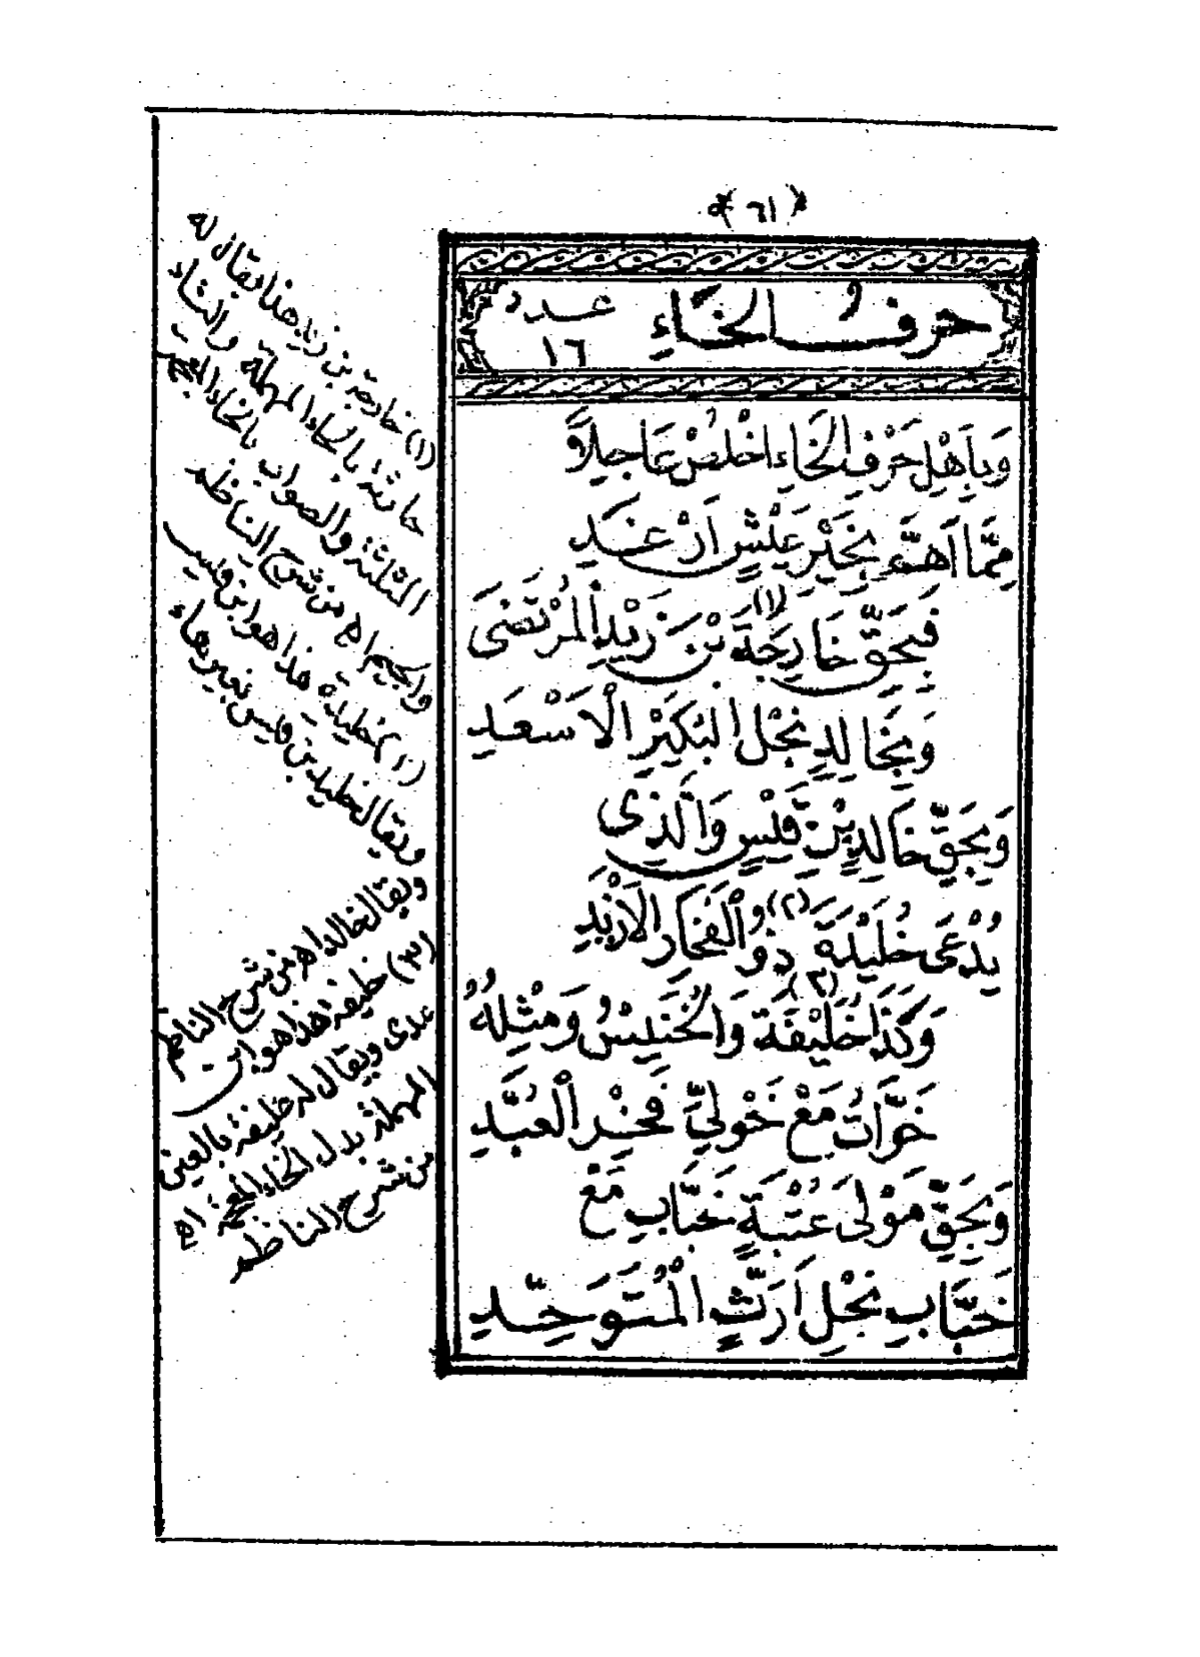 ﴿٦١﴾
حرفُ الخاءِ عدد
١٦
وَبِاَهْلِ حَرْفِ الخَاءِ اخْلُصْ عَاجِلاً
مِمَّا اَهَمَّ بِخَيْرِ عَيْشٍ اَرْغَدِ
فَبِحَقِّ خَارِجَةَ (١) بْنِ زَيْدٍ المُرْتَضَى
وَبِخَالِدٍ نَجْلِ البُكَيْرِ الاَسْعَدِ
وَبِحَقِّ خَالِدِ بْنِ قَيْسٍ وَالَّذِى
يُدْعَى خُلَيْدَةَ (٢) ذُو الْفَخَارِ الاَزْيَدِ
وَكَذَا خَلِيْفَةَ (٣) وَالخُنَيْسُ وَمِثْلُهُ
خَوَّاتُ مَعْ خَوْلِيِّ فَخْرِ الْعُبَّدِ
وَبِحَقِّ مَوْلَى عُتْبَةٍ خَبَّابِ مَعْ
خَبَّابِ نَجْلِ اَرَتٍّ الْمُتَوَحِّدِ
(١) خارجة بن زيد هذا يقال له
حارثة بالحاء المهملة والثاء
المثلثة والصواب بالخاء المعجمة
والجيم اه من شرح الناظم
(٢) خليدة هذا هو ابن قيس
ويقال خليد بن قيس بغير هاء
ويقال خالد اه من شرح الناظم
(٣) خليفة هذا هو ابن
عدى ويقال له عليفة بالعين
المهملة بدل الخاء المعجمة اه
من شرح الناظم